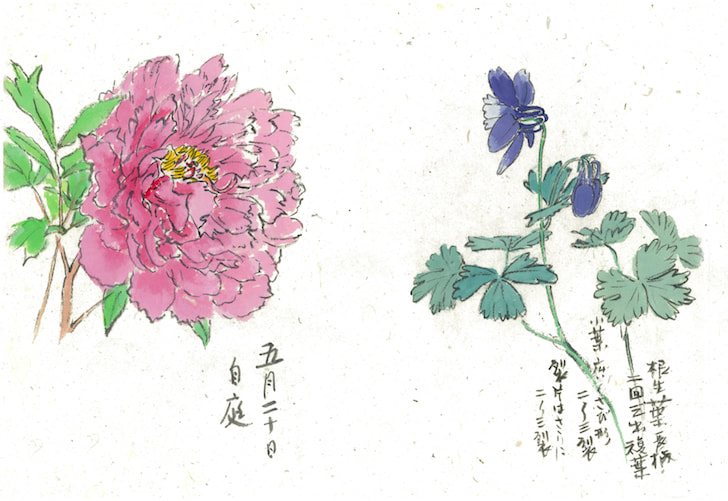 五月二十日
自庭
根生葉長柄
二回三出複葉
小葉広いくさび形
二〜三裂
裂片はさらに
二〜三裂